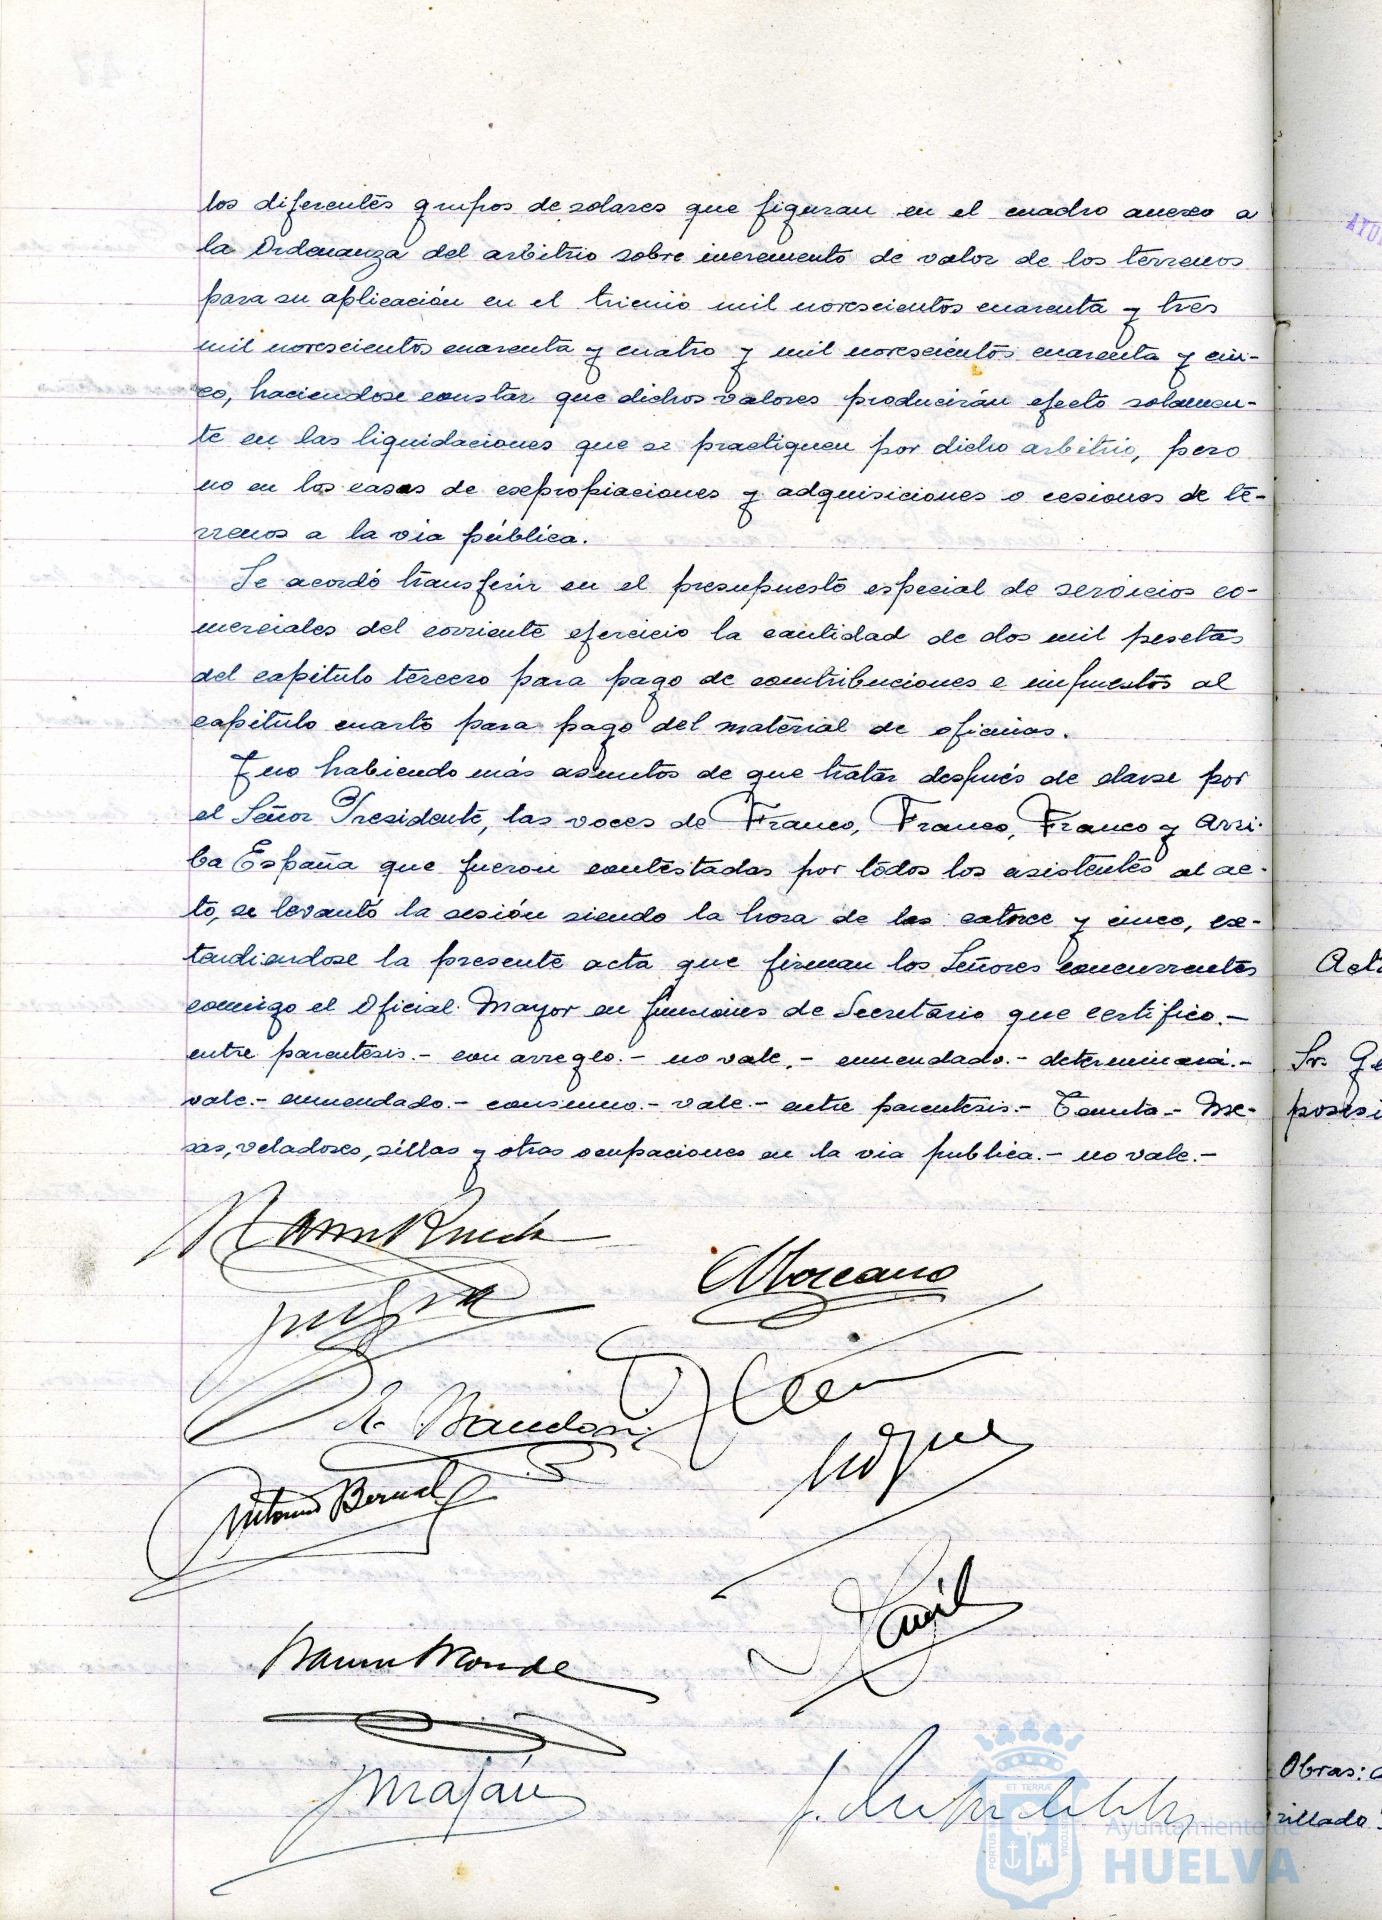 los diferentes grupos de solares que figuran en el cuadro anexo a
la Ordenanza del arbitrio sobre incremento de valor de los terrenos
para su aplicación en el trienio mil novescientos cuarenta y tres
mil novescientos cuarenta y cuatro y mil novescientos cuarenta y cin-
co, haciendose constar que dichos valores producirán efecto solamen-
te en las liquidaciones que se practiquen por dicho arbitrio, pero
no en los casos de expropiaciones y adquisiciones o cesiones de te-
rrenos a la via pública.
Se acordó transferir en el presupuesto especial de servicios co-
merciales del corriente ejercicio la cantidad de dos mil pesetas
del capitulo tercero para pago de contribuciones e impuestos al
capitulo cuarto para pago del material de oficinas.
Y no habiendo más asuntos de que tratar después de darse por
el Señor Presidente, las voces de Franco, Franco, Franco y Arri-
ba España que fueron contestadas por todos los asistentes al ac-
to, se levantó la sesión siendo la hora de las catorce y cinco, ex-
tendiendose la presente acta que firman los Señores concurrentes
conmigo el Oficial Mayor en funciones de Secretario que certifico.-
entre parentesis.- con arreglo.- no vale.- enmendado.- determinará.-
vale.- enmendado.- consumo.- vale.- entre parentesis.- Tenuta.- Me-
sas, veladores, sillas y otras ocupaciones en la via publica.- no vale.-
Antonio Bernal
J. Maján
Acta
Sr. Ge
posesi
Obras:
rillado
AYU
ET TERRAE
PORTUS
CUSTODIA
Ayuntamiento de
HUELVA